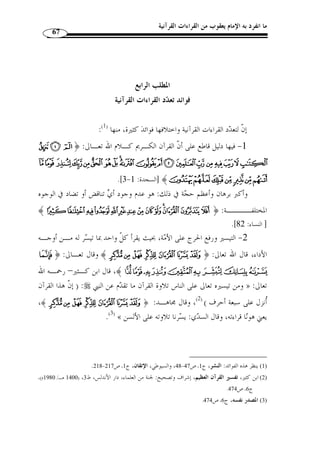 ما انفرد به الإمام يعقوب من القراءات القرآنية
67
المطلب الرابع
فوائد تعدّد القراءات القرآنية
إنّ لتعدّد القراءات القرآنية واختلافها فوائدَ كثيرة، منها(1):
1- فيها دليل قاطع على أنّ القرآن الكـريم كـلام الله تعـالى: ﴿
﴾ [السجدة: 1-3].
وأكبر برهان وأعظم حجّة في ذلك: هو عدم وجود أيّ تناقض أو تضاد في الوجوه
المختلفـة: ﴿ أَفَلَا يَتَدَبَّرُونَ الْقُرْآنَ ﴾
[ النساء: 82].
2- التيسير ورفع الحرج على الأمّة، بحيث يقرأ كلّ واحد بما تيسّر له مـن أوجـه
الأداء، قال الله تعالى: ﴿ وَلَقَدْ يَسَّرْنَا الْقُرْآنَ لِلذِّكْرِ فَهَلْ مِن مُّدَّكِرٍ ﴾ وقال تعـالى: ﴿ فَإِنَّمَا
يَسَّرْنَاهُ بِلِسَانِكَ لِتُبَشِّرَ بِهِ الْمُتَّقِينَ ﴾، قال ابن كـثير– رحمـه الله
تعالى: « ومن تيسيره تعالى على الناس تلاوة القرآن ما تقدّم عن النبي ﷺ: ( إنّ هذا القرآن
أُنزل على سبعة أحرف )(2)، وقال مجاهـد: ﴿ وَلَقَدْ يَسَّرْنَا الْقُرْآنَ لِلذِّكْرِ ﴾،
يعني هونّا قراءته، وقال السدّي: يسّرنا تلاوته على الألسن »(3).
(1) ينظر هذه الفوائد: النشر، ج1، ص47–48، والسيوطي، الإتقان، ج1، ص217-218.
(2) ابن كثير، تفسير القرآن العظيم، إشراف وتصحيح: لجنة من العلماء، دار الأندلس، ط3، 1400هـ/1980م،
ج6، ص474.
(3) المصدر نفسه، ج6، ص474.